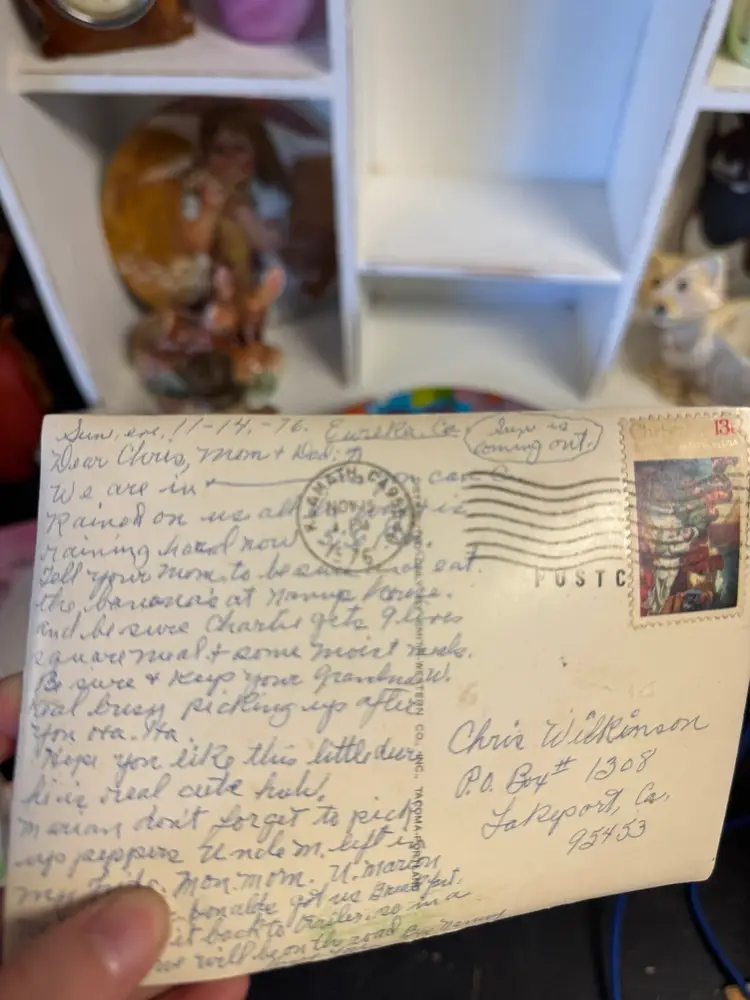 Sun. eve. 11-14.-76. Eureka. Ca.
Sun is
coming out.
Dear Chris, Mom & Dad.
We are in you can
Rained on us all is
raining hard now
Tell your Mom to be sure eat
the banana's at Nanny House.
and be sure Charlie gets 9 lives
square meal & some moist meals.
Be sure & keep your Grandma W.
real busy picking up after
you Ha. Ha.
Hope you like this little deer
he is real cute huh.
Marian don't forget to pick
up peppers Uncle M. left in
my Mon. morn. U. Marion
Donalds got us Breakfast.
it back to so in a
we will be on the road Bye Nanny
KLAMATH, CA
NOV 15
POSTC
WESTERN CO., INC., TACOMA-PORTLAND
13c
Chris Wilkinson
P.O. Box # 1308
Lakeport, Ca.
95453